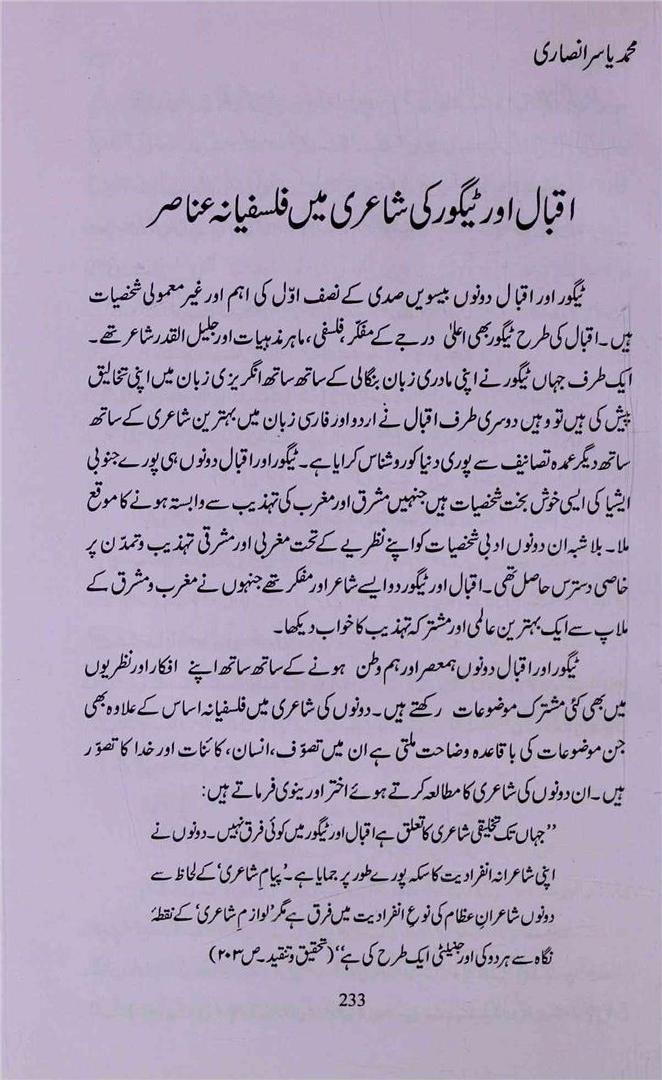 محمد یاسر انصاری
اقبال اور ٹیگور کی شاعری میں فلسفیانہ عناصر
ٹیگور اور اقبال دونوں بیسویں صدی کے نصف اوّل کی اہم اور غیر معمولی شخصیات
ہیں۔ اقبال کی طرح ٹیگور بھی اعلیٰ درجے کے مفکر، فلسفی، ماہر مذہبیات اور جلیل القدر شاعر تھے۔
ایک طرف جہاں ٹیگور نے اپنی مادری زبان بنگالی کے ساتھ ساتھ انگریزی زبان میں اپنی تخالیق
پیش کی ہیں تو وہیں دوسری طرف اقبال نے اردو اور فارسی زبان میں بہترین شاعری کے ساتھ
ساتھ دیگر عمدہ تصانیف سے پوری دنیا کو روشناس کرایا ہے۔ ٹیگور اور اقبال دونوں ہی پورے جنوبی
ایشیا کی ایسی خوش بخت شخصیات ہیں جنہیں مشرق اور مغرب کی تہذیب سے وابستہ ہونے کا موقع
ملا۔ بلا شبہ ان دونوں ادبی شخصیات کو اپنے نظریے کے تحت مغربی اور مشرقی تہذیب و تمدّن پر
خاصی دسترس حاصل تھی۔ اقبال اور ٹیگور دو ایسے شاعر اور مفکر تھے جنہوں نے مغرب و مشرق کے
ملاپ سے ایک بہترین عالمی اور مشترکہ تہذیب کا خواب دیکھا۔
ٹیگور اور اقبال دونوں ہمعصر اور ہم وطن ہونے کے ساتھ ساتھ اپنے افکار اور نظریوں
میں بھی کئی مشترک موضوعات رکھتے ہیں۔ دونوں کی شاعری میں فلسفیانہ اساس کے علاوہ بھی
جن موضوعات کی باقاعدہ وضاحت ملتی ہے ان میں تصوّف، انسان، کائنات اور خدا کا تصوّر
ہیں۔ ان دونوں کی شاعری کا مطالعہ کرتے ہوئے اختر اورینوی فرماتے ہیں:
”جہاں تک تخلیقی شاعری کا تعلق ہے اقبال اور ٹیگور میں کوئی فرق نہیں۔ دونوں نے
اپنی شاعرانہ انفرادیت کا سکہ پورے طور پر جمایا ہے۔ ’پیامِ شاعری‘ کے لحاظ سے
دونوں شاعرانِ عظام کی نوعِ انفرادیت میں فرق ہے مگر ’لوازمِ شاعری‘ کے نقطۂ
نگاہ سے ہر دو کی اورجنیلٹی ایک طرح کی ہے“ (تحقیق و تنقید۔ ص ۲۰۳)
233